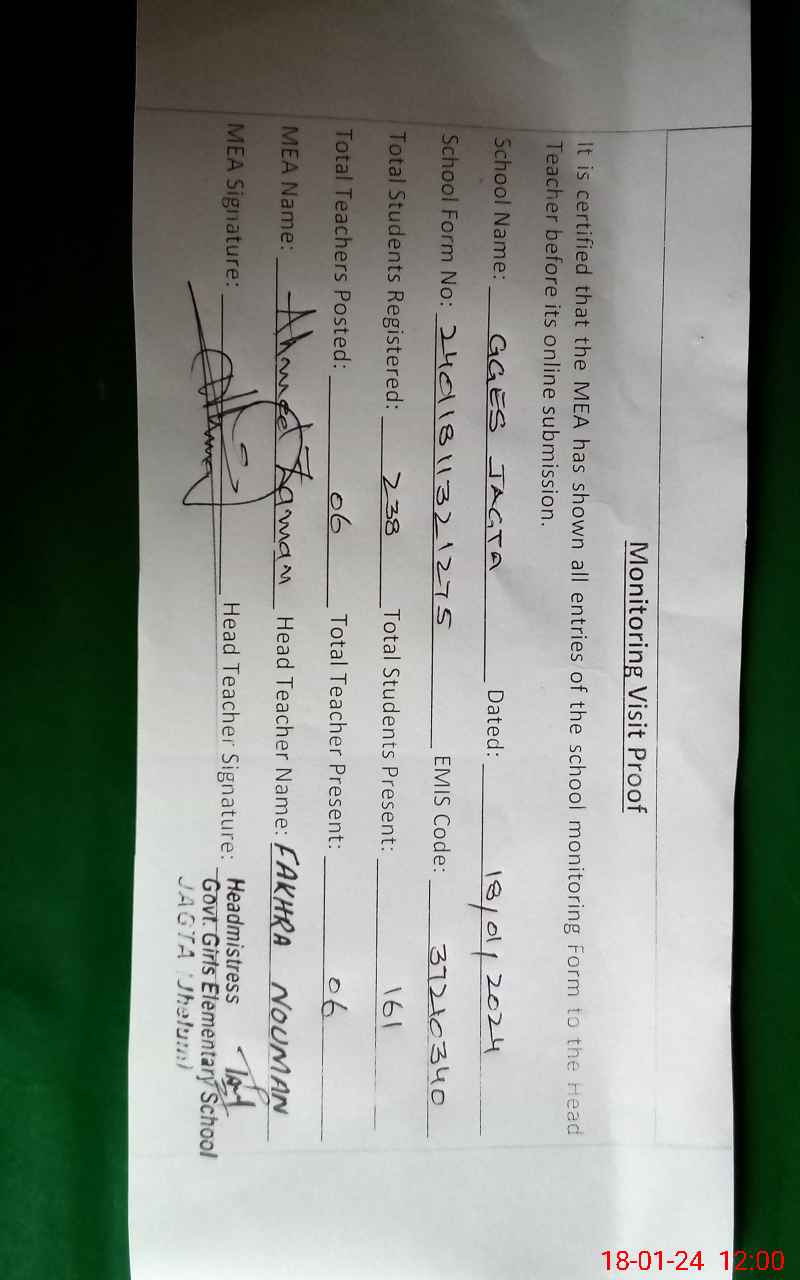 Monitoring Visit Proof
It is certified that the MEA has shown all entries of the school monitoring Form to the Head
Teacher before its online submission.
School Name: GGES JAGTA Dated: 18/01/2024
School Form No: 2401181132 1275 EMIS Code: 37210340
Total Students Registered: 238 Total Students Present: 161
Total Teachers Posted: 06 Total Teacher Present: 06
MEA Name: Ahmed Zaman Head Teacher Name: FAKHRA NOUMAN
MEA Signature: Head Teacher Signature:
Headmistress
Govt. Girls Elementary School
JAGTA (Jhelum)
18-01-24 12:00